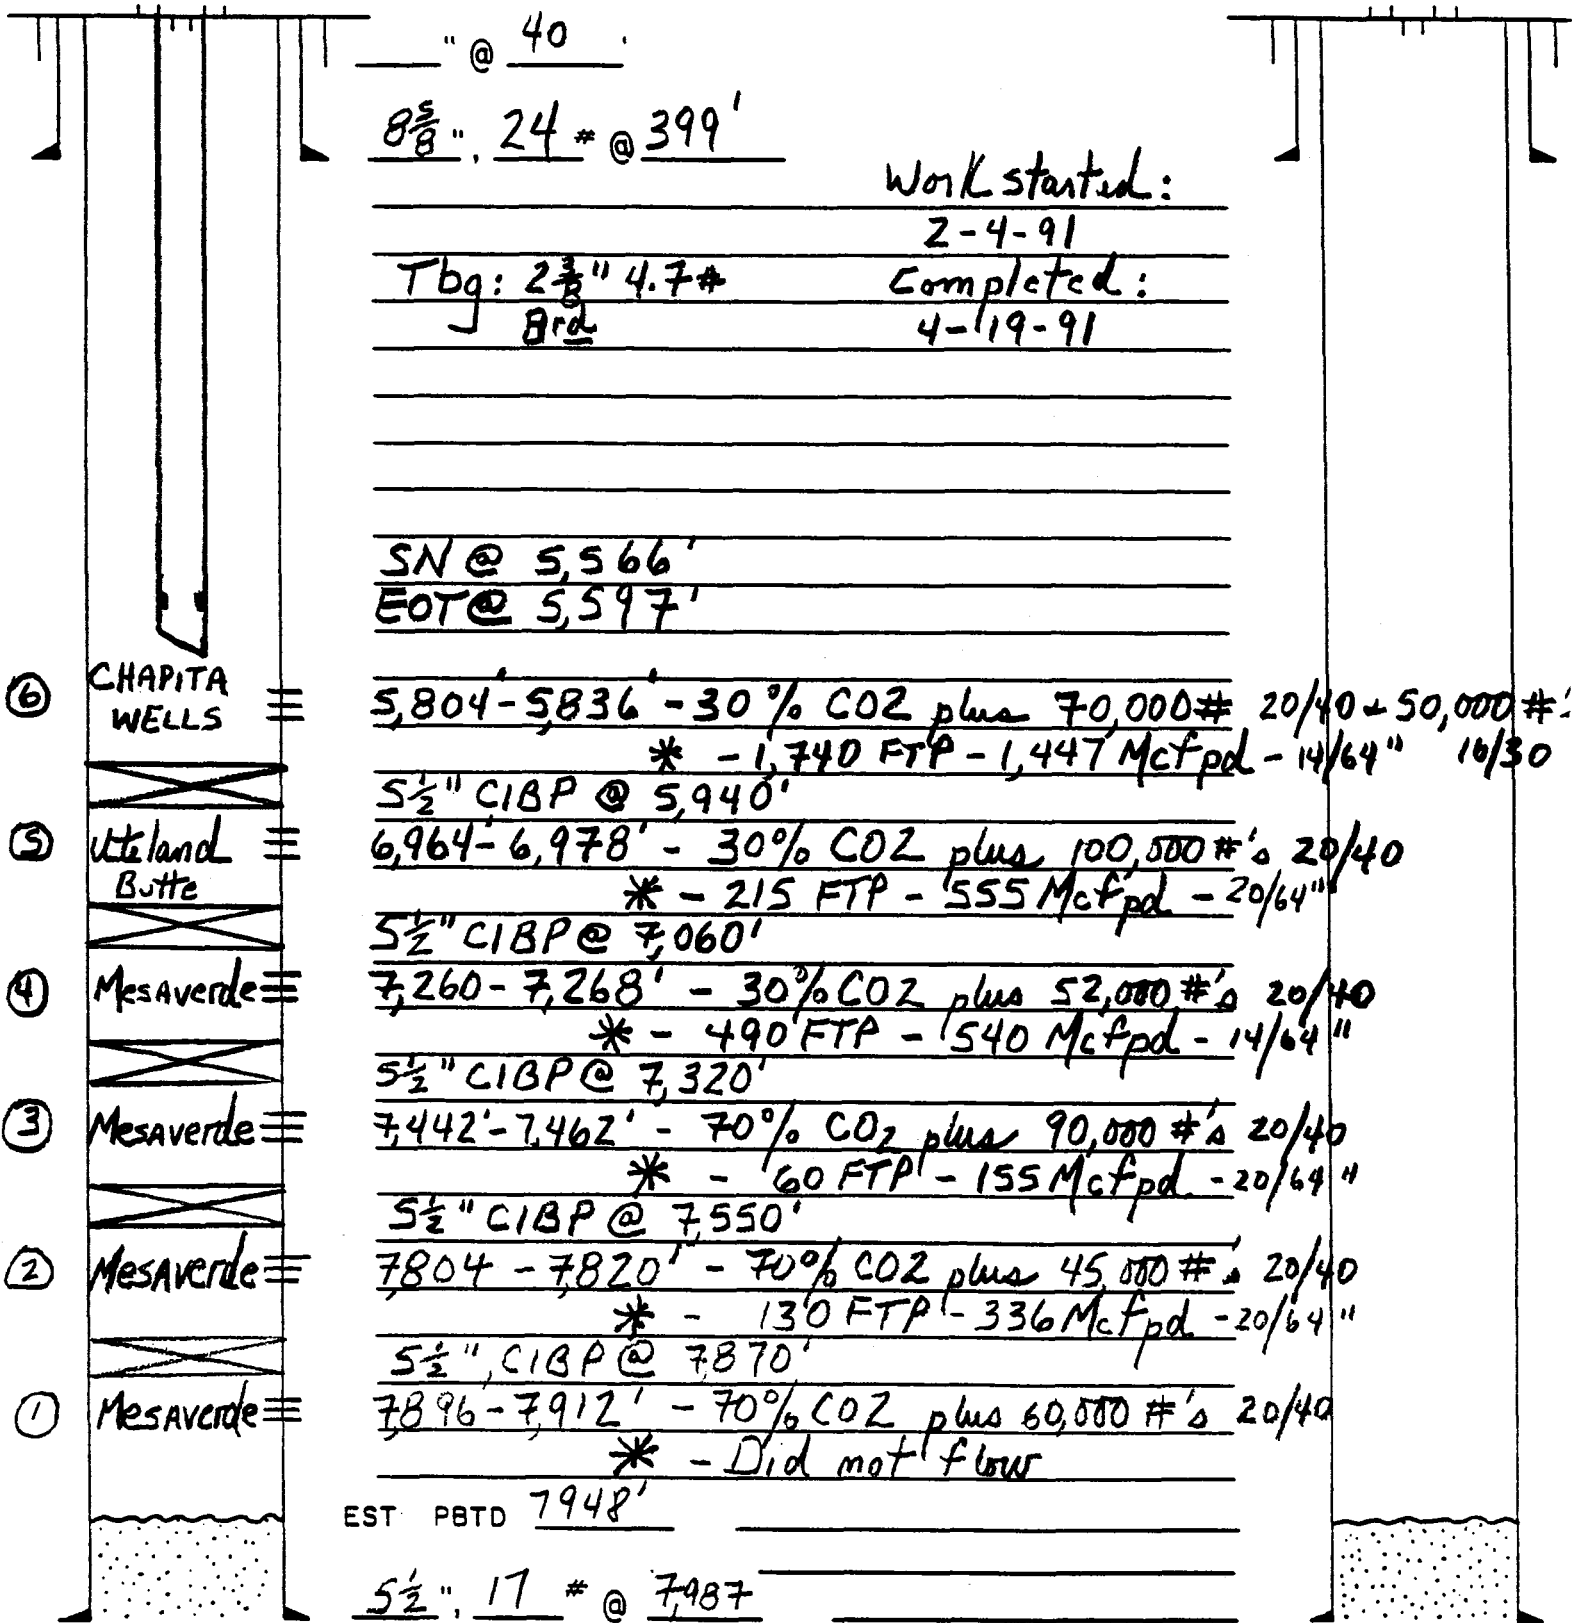 " @ 40 '
8 5/8 ", 24 # @ 399'
Work started:
2-4-91
Tbg: 2 3/8" 4.7# Completed:
8rd 4-19-91
SN @ 5,566'
EOT @ 5,597'
⑥ CHAPITA WELLS 5,804'-5,836' - 30% CO2 plus 70,000# 20/40 + 50,000 #'s
* - 1,740 FTP - 1,447 Mcfpd - 14/64" 16/30
5 1/2" CIBP @ 5,940'
⑤ Uteland Butte 6,964'-6,978' - 30% CO2 plus 100,000 #'s 20/40
* - 215 FTP - 555 Mcfpd - 20/64"
5 1/2" CIBP @ 7,060'
④ Mesaverde 7,260-7,268' - 30% CO2 plus 52,000 #'s 20/40
* - 490 FTP - 540 Mcfpd - 14/64"
5 1/2" CIBP @ 7,320'
③ Mesaverde 7,442'-7,462' - 70% CO2 plus 90,000 #'s 20/40
* - 60 FTP - 155 Mcfpd - 20/64"
5 1/2" CIBP @ 7,550'
② Mesaverde 7,804 - 7,820' - 70% CO2 plus 45,000 #'s 20/40
* - 130 FTP - 336 Mcfpd - 20/64"
5 1/2", CIBP @ 7,870'
① Mesaverde 7,896-7,912' - 70% CO2 plus 60,000 #'s 20/40
* - Did not flow
EST PBTD 7948'
5 1/2 ", 17 # @ 7,987